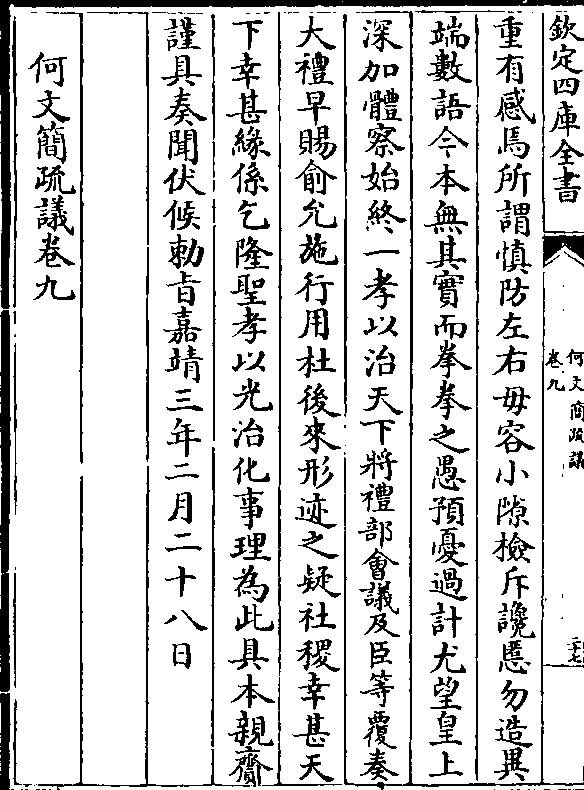 欽定四庫全書
何文簡疏議
卷九
二十七
重有感焉所謂慎防左右毋容小隙檢斥讒慝勿造異
端數語今本無其實而拳拳之愚預憂過計尤望皇上
深加體察始終一孝以治天下將禮部會議及臣等覆奏
大禮早賜俞允施行用杜後來形迹之疑社稷幸甚天
下幸甚緣係乞隆聖孝以光治化事理為此具本親齎
謹具奏聞伏候勅旨嘉靖三年二月二十八日
何文簡疏議卷九